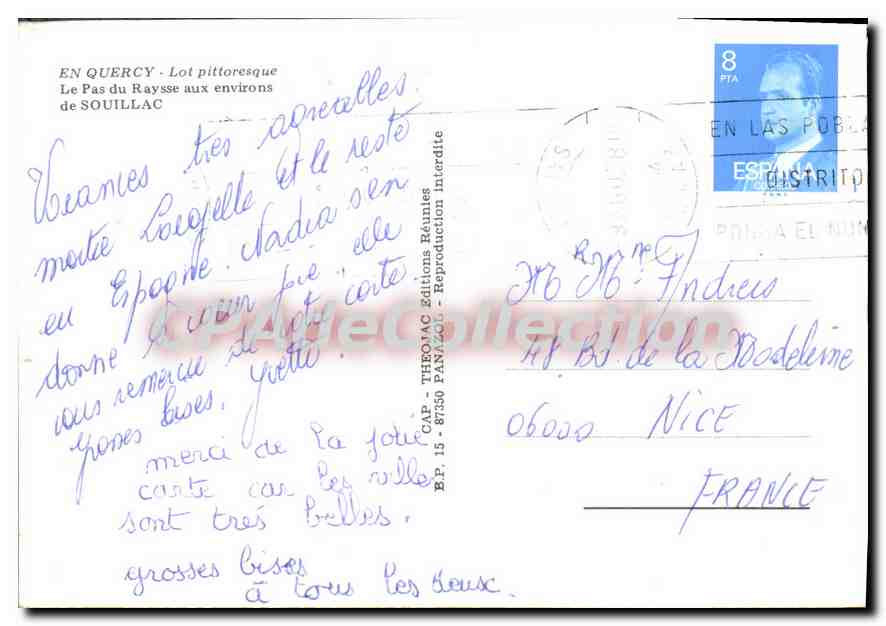 EN QUERCY - Lot pittoresque
Le Pas du Raysse aux environs
de SOUILLAC
Vacances très agréables.
moitié et le reste
en Espagne. Nadia s'en
donne à coeur joie, elle
vous remercie de votre carte.
grosses bises. Yvette.
merci de la jolie
carte car les villes
sont très belles.
grosses bises
à tous les deux.
CAP - THEOJAC Editions Réunies
B.P. 15 - 87350 PANAZOL - Reproduction interdite
8
PTA
ESPAÑA
CORREOS
EN LAS POBLA
DISTRITO
PONGA EL NUM
M Mme Andreis
48 Bd. de la Madeleine
06000 NICE
FRANCE
CPAdeCollection